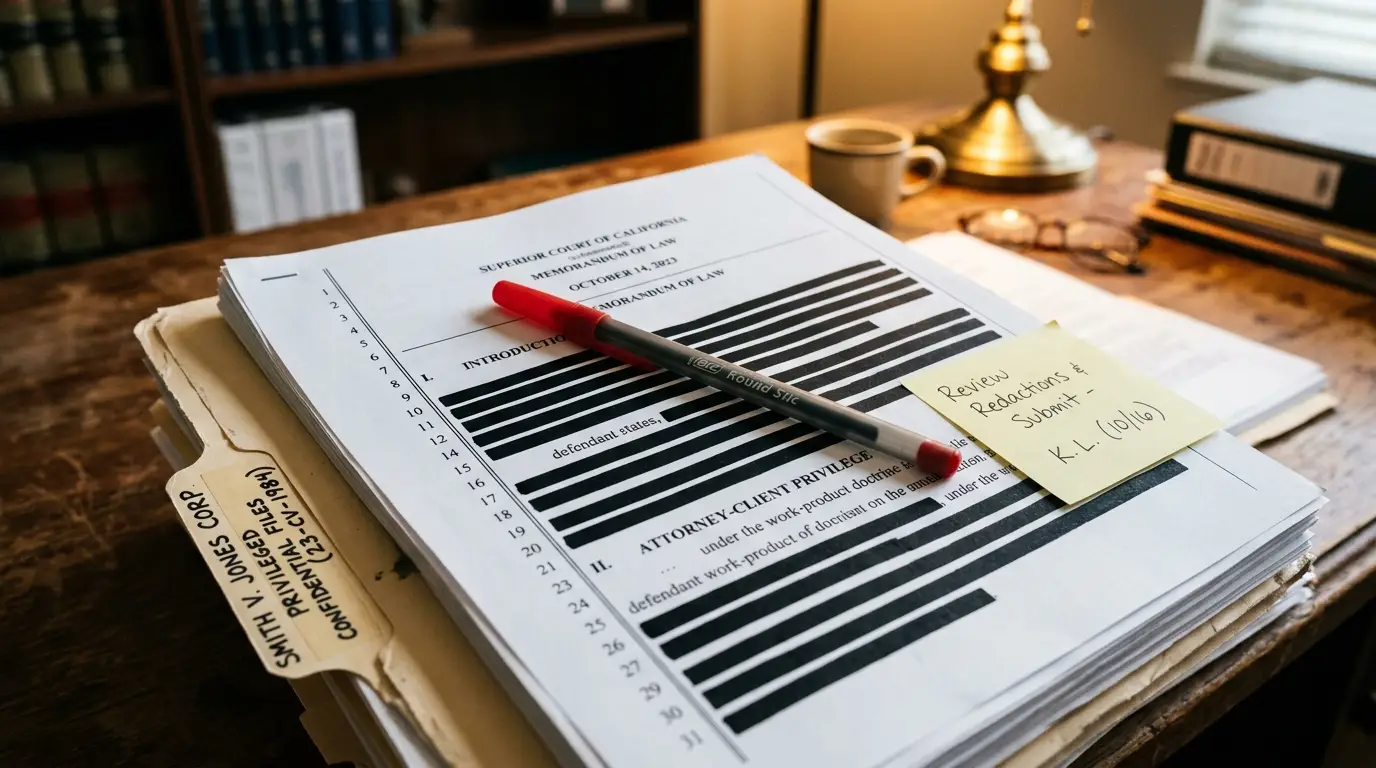 SUPERIOR COURT OF CALIFORNIA
MEMORANDUM OF LAW
OCTOBER 14, 2023
MORANDUM OF LAW
1
2
3
4
5
6
7
8
9
10
11
12
14
15
16
17
18
19
20
21
23
24
25
26
27
29
30
31
I. INTRODUCTIO
defendant states,
II. ATTORNEY-CLIENT PRIVILEGE
under the work-product doctrine
...
defendant work-product of on the under the
Round Stic
Review
Redactions &
Submit -
K.L. (10/16)
SMITH V. JONES CORP
PRIVILEGED
CONFIDENTIAL FILES
(23-CV-1984)